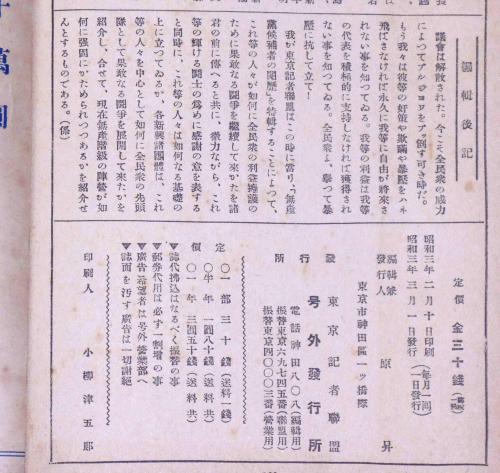 編輯後記
議會は解散された。今こそ全民衆の威力
によつてブルジヨワをブッ倒す可き時だ。
もう我々は彼等の奸策や欺瞞や暴壓をハネ
飛ばさなければ永久に我等に自由が將來さ
れない事を知つてゐる。我等の利益は我等
の代表を積極的に支持しなければ獲得され
ない事を知つてゐる。全民衆よ、擧つて暴
壓に抗して立て！
我が東京記者聯盟はこの時に當り、「無產
黨候補者の閲歷」を特輯することによつて、
これ等の人々が如何に全民衆の利益擁護の
ために果敢なる鬪爭を繼續して來かたを諸
君の前に傳へると共に、微力ながら、これ
等の輝ける鬪士の爲めに感謝の意を表する
と同時に、これ等の人々は如何なる基礎の
上に立つてゐるか、各新興諸團體は、これ
等の人々を中心として如何に全民衆の先頭
隊として果敢なる鬪爭を展開して來たかを
紹介し、合せて、現在無產階級の陣營が如
何に强固にかためられつつあるかを紹介せ
んとするものである。(係)
定價 金三十錢
昭和三年二月十日印刷
昭和三年三月一日發行
(每月一回一日發行)
編輯兼
發行人 原 昇
東京市神田區一ッ橋際
發行所
東京記者聯盟
號外發行所
電話神田八〇八(編輯用)
振替東京六九七四五番(聯盟用)
振替東京四〇〇〇三番(營業用)
定價
〇一部三十錢(送料一錢)
〇半年一圓八十錢(送料共)
〇一年三圓五十錢(送料共)
▼誌代拂込はなるべく振替の事
▼郵券代用は必ず一割增の事
▼廣告希望者は号外營業部へ
▼誌面を汚す廣告は一切謝絕
印刷人 小柳津五郎